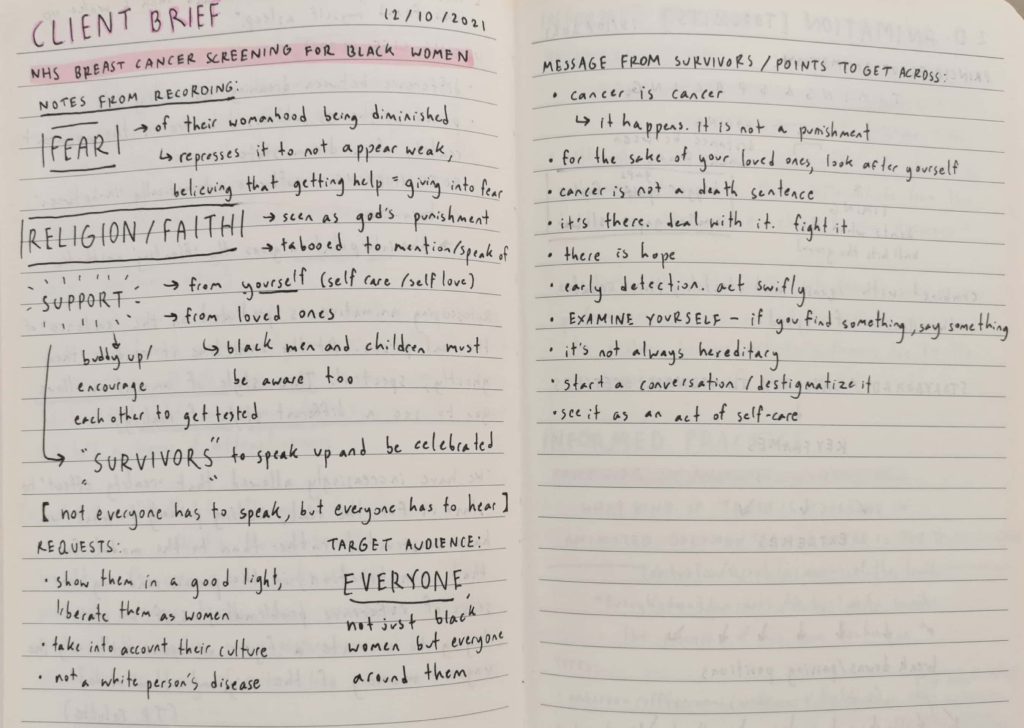 CLIENT BRIEF 12/10/2021
NHS BREAST CANCER SCREENING FOR BLACK WOMEN
NOTES FROM RECORDING:
|FEAR| → of their womanhood being diminished
↳ represses it to not appear weak,
believing that getting help = giving into fear
|RELIGION/FAITH| → seen as god's punishment
→ tabooed to mention/speak of
SUPPORT → from yourself (self care/self love)
→ from loved ones
buddy up/ ↳ black men and children must
encourage be aware too
each other to get tested
→ "SURVIVORS" to speak up and be celebrated
[not everyone has to speak, but everyone has to hear]
REQUESTS:
• show them in a good light,
liberate them as women
• take into account their culture
• not a white person's disease
TARGET AUDIENCE:
EVERYONE,
not just black
women but everyone
around them
MESSAGE FROM SURVIVORS / POINTS TO GET ACROSS:
• cancer is cancer
↳ it happens. it is not a punishment
• for the sake of your loved ones, look after yourself
• cancer is not a death sentence
• it's there. deal with it. fight it
• there is hope
• early detection. act swifly
• EXAMINE YOURSELF – if you find something, say something
• it's not always hereditary
• start a conversation / destigmatize it
• see it as an act of self-care